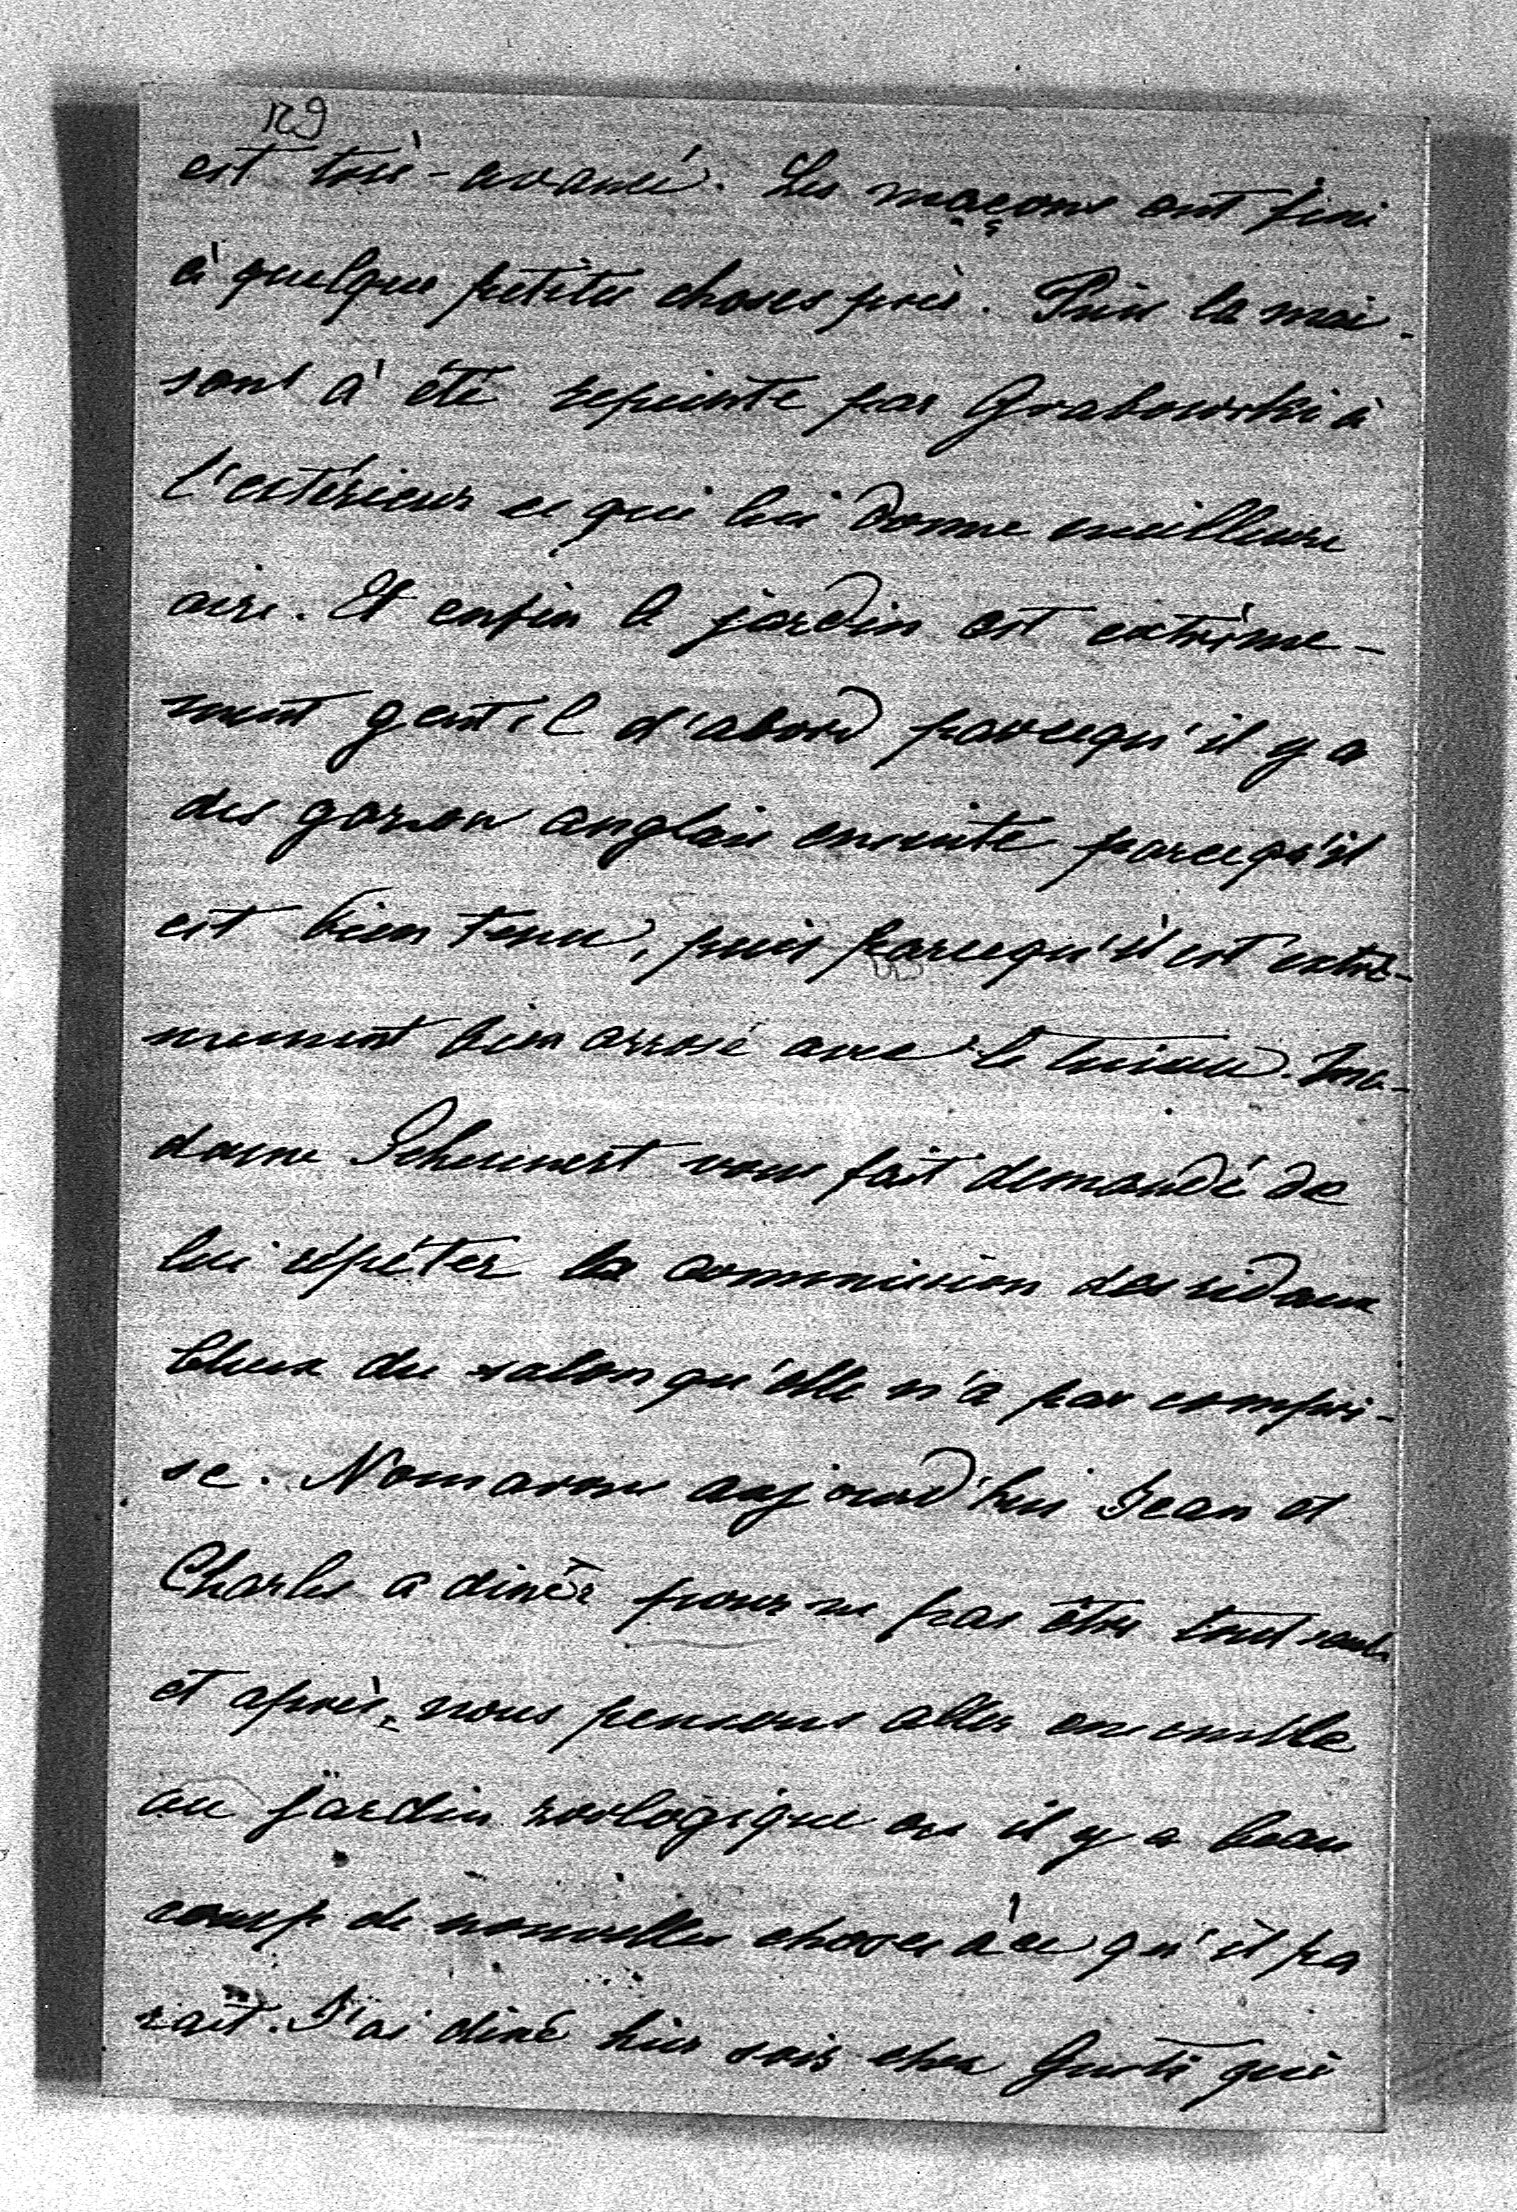 129
est très-avancé. Les maçons ont fini
à quelques petites choses près. Puis la mai-
son a été repeinte par Grabowski à
l'extérieur ce qui lui donne meilleure
aire. Et enfin le jardin est extrême-
ment gentil d'abord parcequ'il y a
des gazon anglais ensuite parcequ'il
est bien tenu, puis parcequ'il est extrê-
mement bien arrosé avec le tuiau. Ma-
dame Scheunert vous fait demandé de
lui répéter la commission des ridaux
bleux du salon qu'elle n'a pas compri-
se. Nous avons aujourd'hui Jean et
Charles a diner pour ne pas être tout seuls
et après, nous pensons aller ensemble
au jardin zoologique ou il y a beau
coup de nouvelles choses à ce qu'il pa
rait. J'ai diné hier soir chez Gusti qui